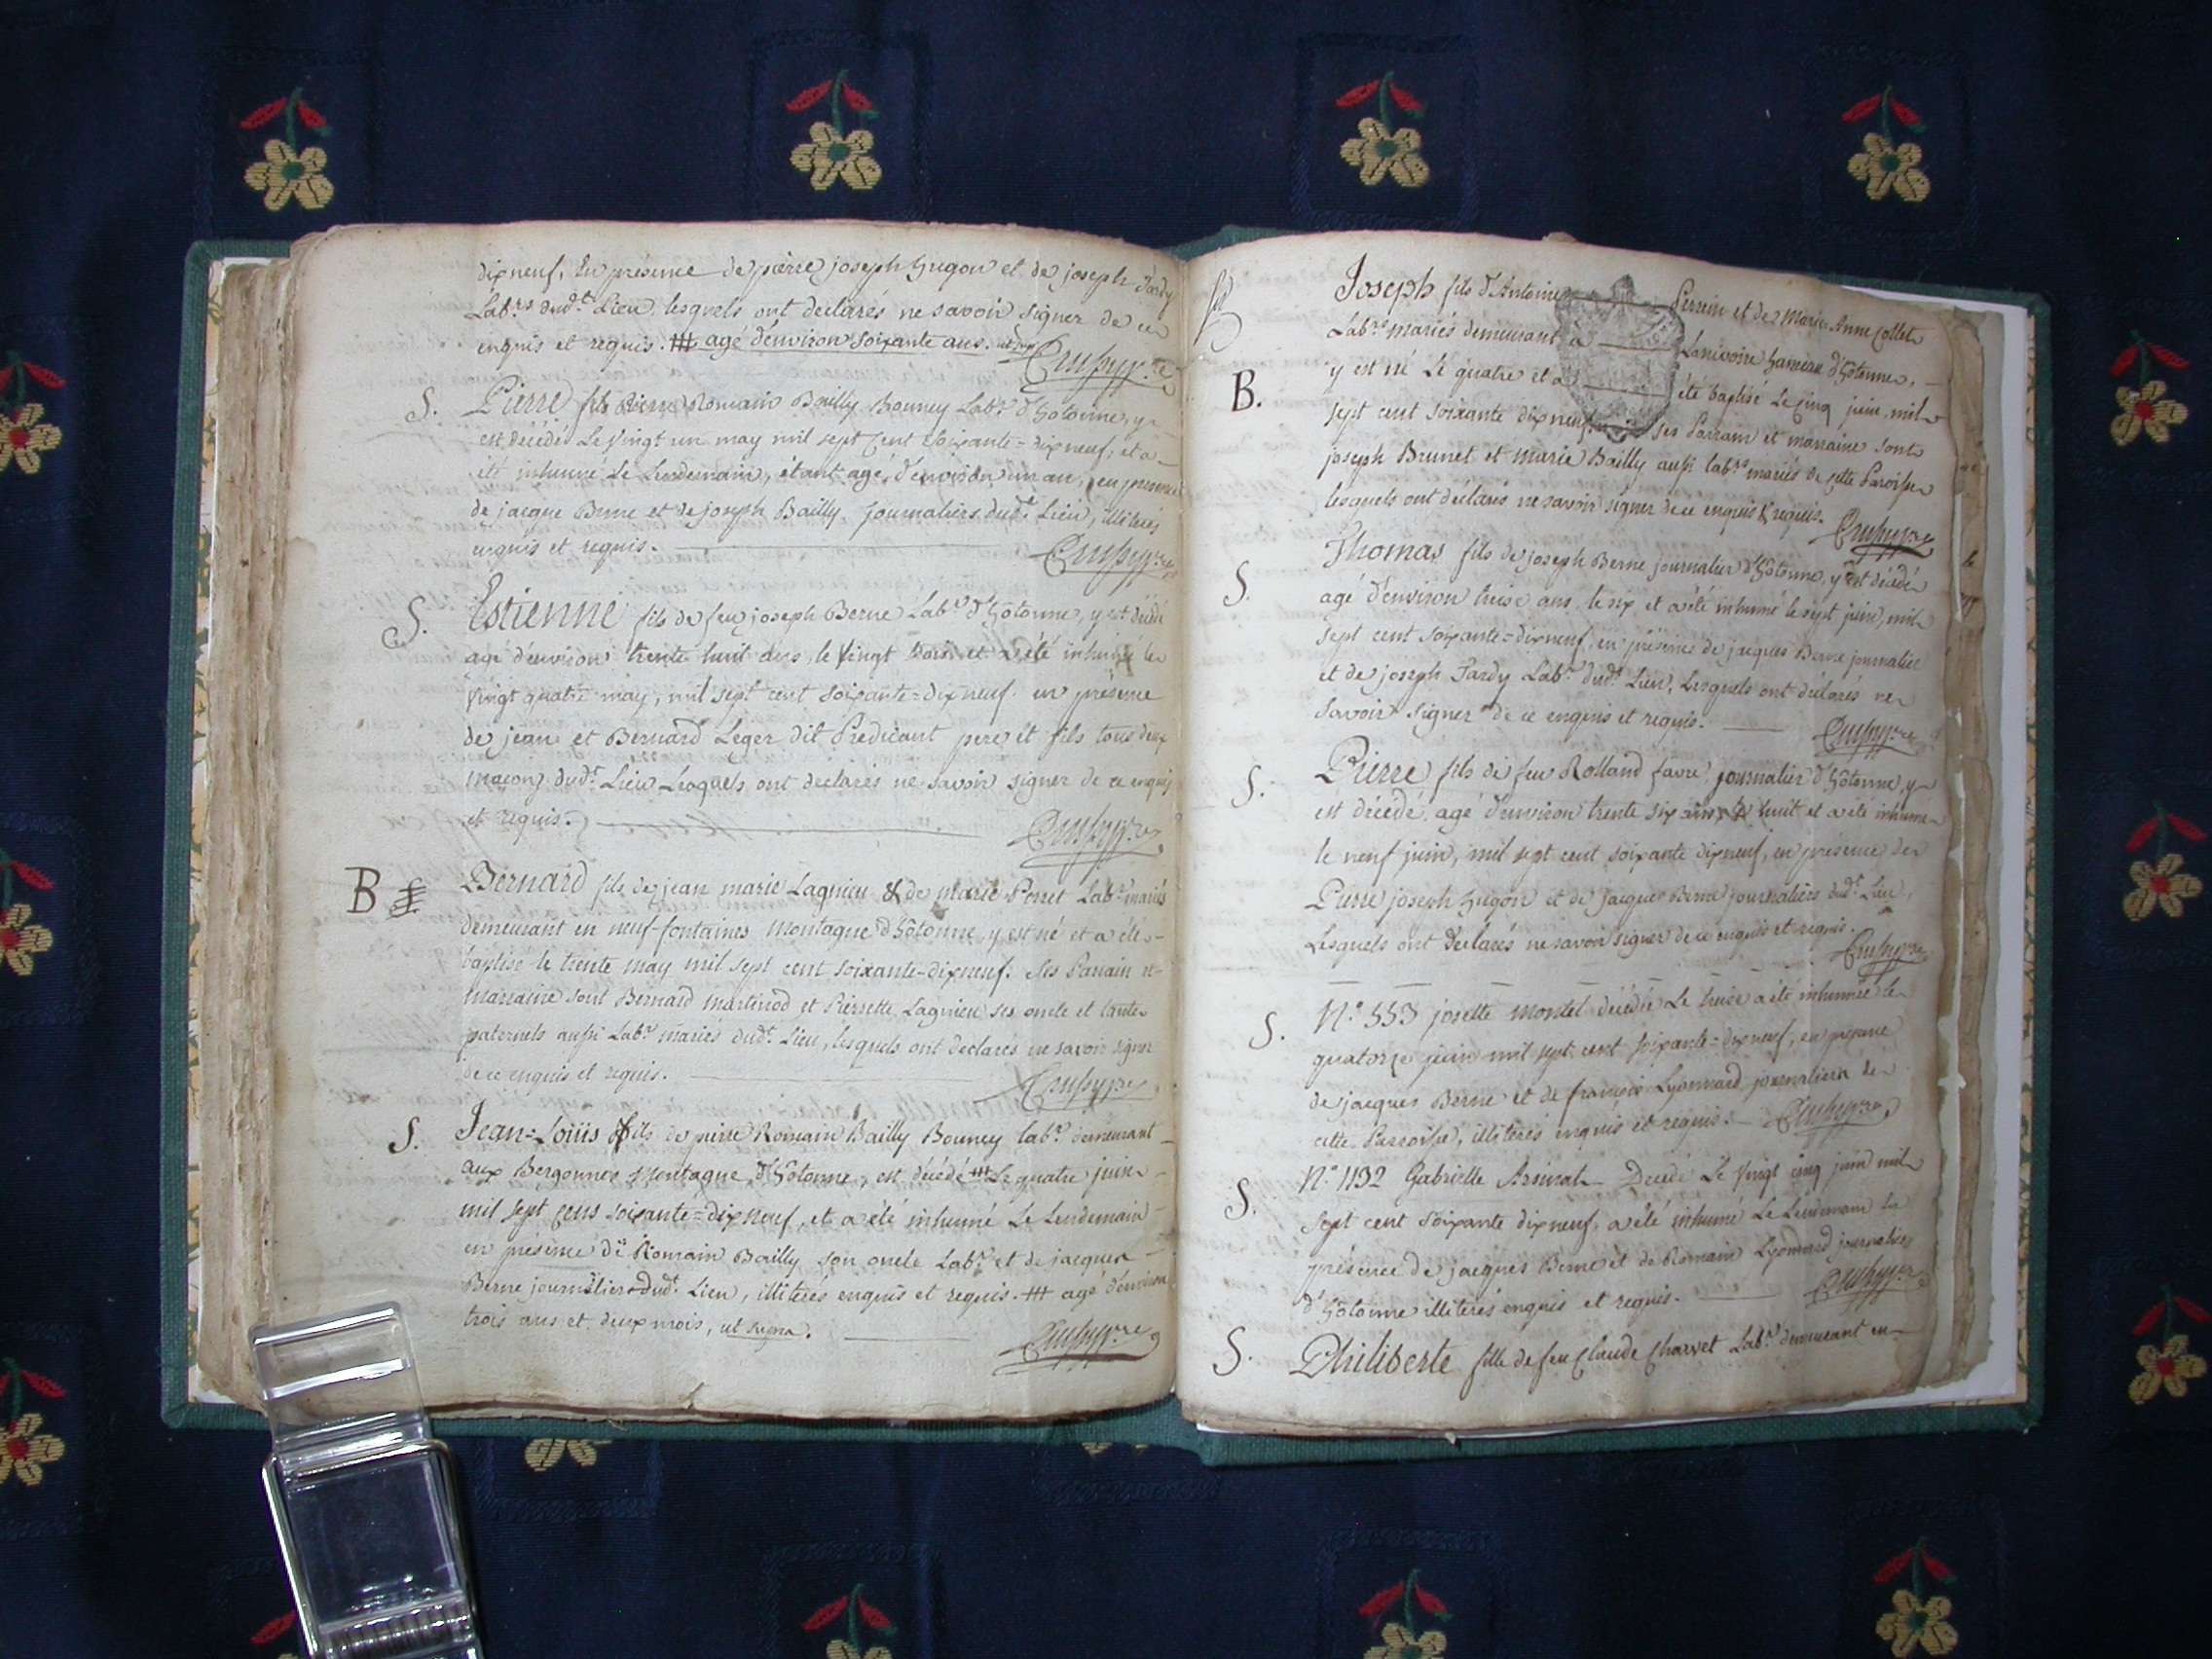 dixneuf, En présence de pierre joseph hugon et de joseph Tardy
Lab.rs dud.t Lieu, lesquels ont declarés ne savoir signer de ce
enquis et requis. ### agé d'environ soixante ans.
S. Pierre fils Pierre Romain Bailly Bouney Lab.r d'hotonne, y
est décédé Le vingt un may mil sept cent soixante=dixneuf, et a
été inhumé Le Lendemain, étant agé d'environ un an, en presence
de jacque Berne et de joseph Bailly, journaliers dud.t Lieu, illiterés
enquis et requis.
S. Estienne fils de feu joseph Berne Lab.r d'hotonne, y est décédé
agé d'environ trente huit ans, le vingt trois et a été inhumé le
vingt quatre may, mil sept cent soixante=dixneuf. en présence
de jean et Bernard Leger dit Predicant pere et fils tous deux
maçons dud.t Lieu Lesquels ont declarés ne savoir signer de ce enquis
et requis.
B Bernard fils de jean marie Lagnieu & de marie Porret Lab.rs mariés
demeurant en neuf-fontaines Montagne d'hotonne, y est né et a été
baptisé le trente may mil sept cent soixante-dixneuf. Ses Parrain et
marraine sont Bernard martinod et Pierrette Lagnieu ses oncle et tante
paternels aussi Lab.rs mariés dud.t Lieu, lesquels ont declarés ne savoir signer
de ce enquis et requis.
S. Jean=Loüis fils de pierre Romain Bailly Bouney lab.r demeurant
aux Bergonnes Montagne d'hotonne, est décédé ### Le quatre juin
mil sept cens soixante=dixneuf, et a été inhumé Le Lendemain
en présence de Romain Bailly son oncle Lab.r et de jacques
Berne journalier dud.t Lieu, illiterés enquis et requis. ### agé d'environ
trois ans et deux mois, ut supra.
Joseph fils d'Antoine Perrin et de Marie Anne Collet
Lab.rs mariés demeurant a Lanivoire hameau d'hotonne,
B. y est né Le quatre et a été baptisé Le Cinq juin mil
sept cent soixante dixneuf, ses Parrain et marraine sont
joseph Brunet et marie Bailly aussi lab.rs mariés de cette Paroisse
lesquels ont déclarés ne savoir signer de ce enquis & requis.
S. Thomas fils de joseph Berne journalier d'hotonne, y est décédé
agé d'environ treise ans le six et a été inhumé le sept juin, mil
sept cent soixante=dixneuf, en présence de jacques Berne journalier
et de joseph Tardy Lab.r dud.t Lieu, Lesquels ont déclarés ne
savoir signer de ce enquis et requis.
S. Pierre fils de feu Rolland favre journalier d'hotonne, y
est décédé, agé d'environ trente six ans, le huit et a été inhumé
le neuf juin, mil sept cent soixante dixneuf, en présence de
Pierre joseph hugon et de jacques Berne journaliers dud.t Lieu,
Lesquels ont declarés ne savoir signer de ce enquis et requis.
S. N.o 553 josette Montel décédée Le treise a été inhumée le
quatorze juin mil sept cent soixante=dixneuf, en présence
de jacques Berne et de françois Lyonnard journaliers de
cette Parroisse, illiterés enquis et requis.
S. N.o 1132 Gabrielle Decedé Le vingt cinq juin mil
sept cent soixante dixneuf, a été inhumé Le Lendemain en
présence de jacques Berne et de Romain Lyonnard journaliers
d'hotonne illiterés enquis et requis.
S. Philiberte fille de feu Claude Charvet Lab.r demeurant en